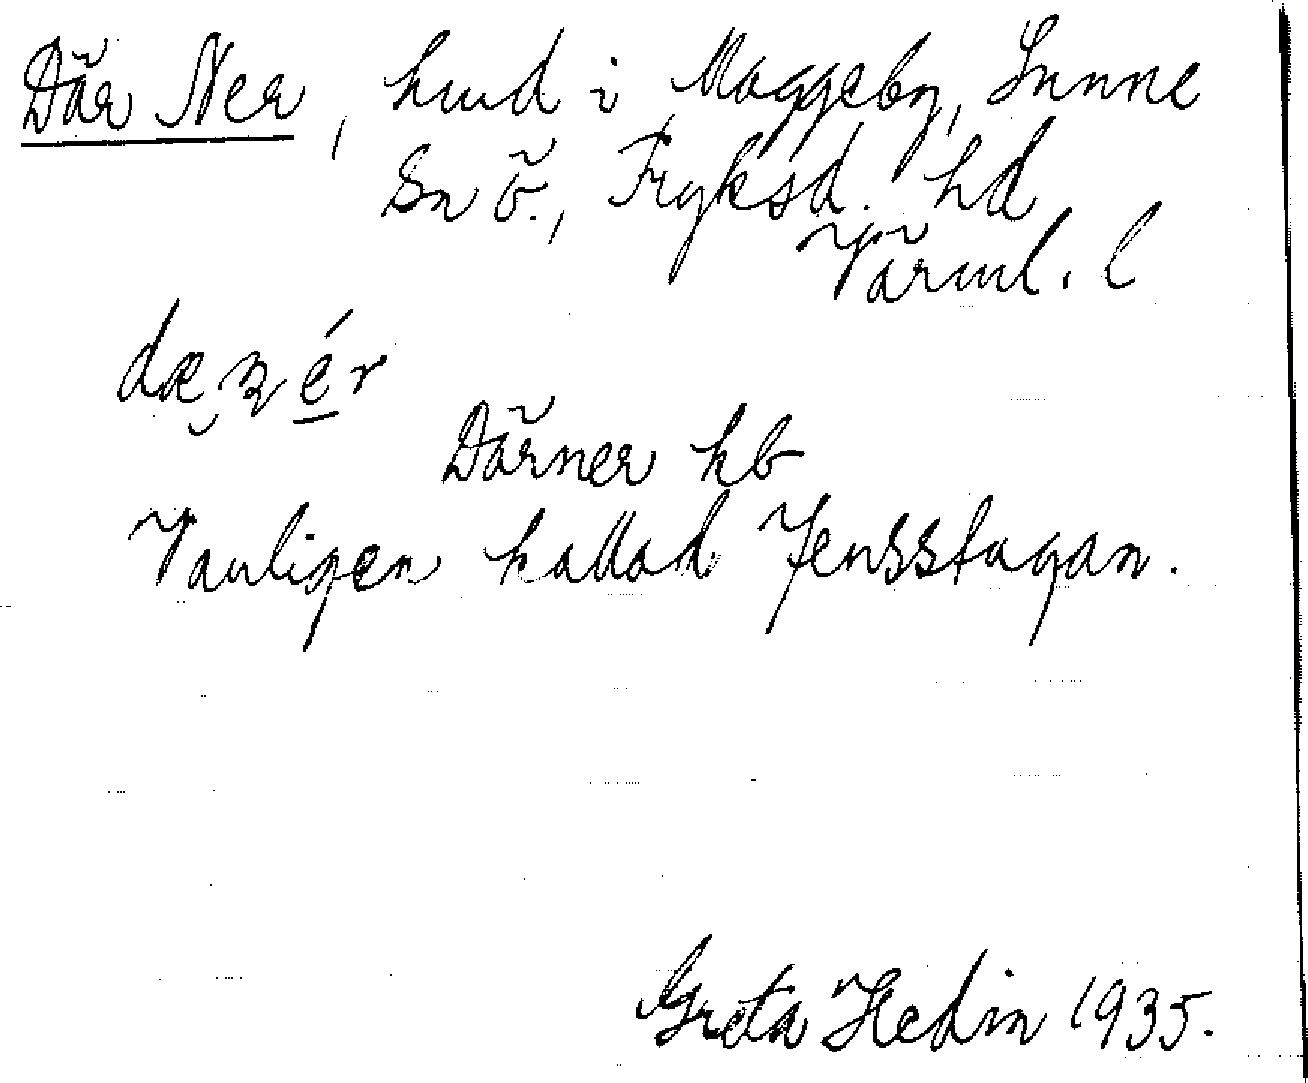 Där Ner, hmd i Maggeby, Sunne
Sn ö., Fryksd. hd
Värml. l
Därner kb
Vanligen kallad Jensstugan.
Greta Hedin 1935.